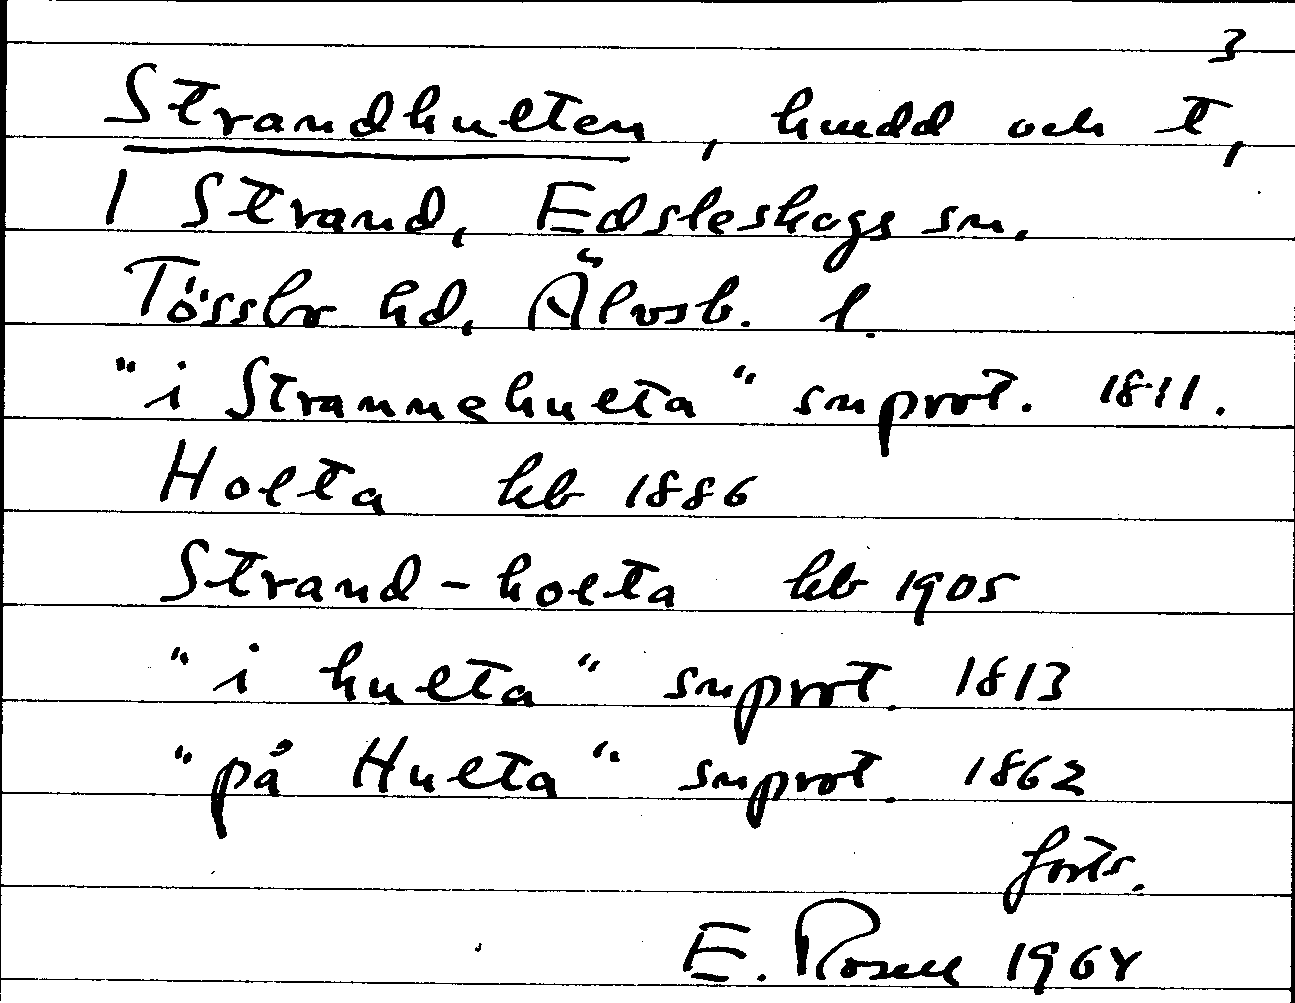 3
Strandhulten, hmdd och t,
1 Strand, Edsleskogs sn.
Tössbo hd, Älvsb. l.
"i Strannehulta" snprot. 1811.
Holta hb 1886
Strand-holta hb 1905
"i hulta" snprot. 1813
"på Hulta" snprot. 1862
forts.
E. Rosell 1964